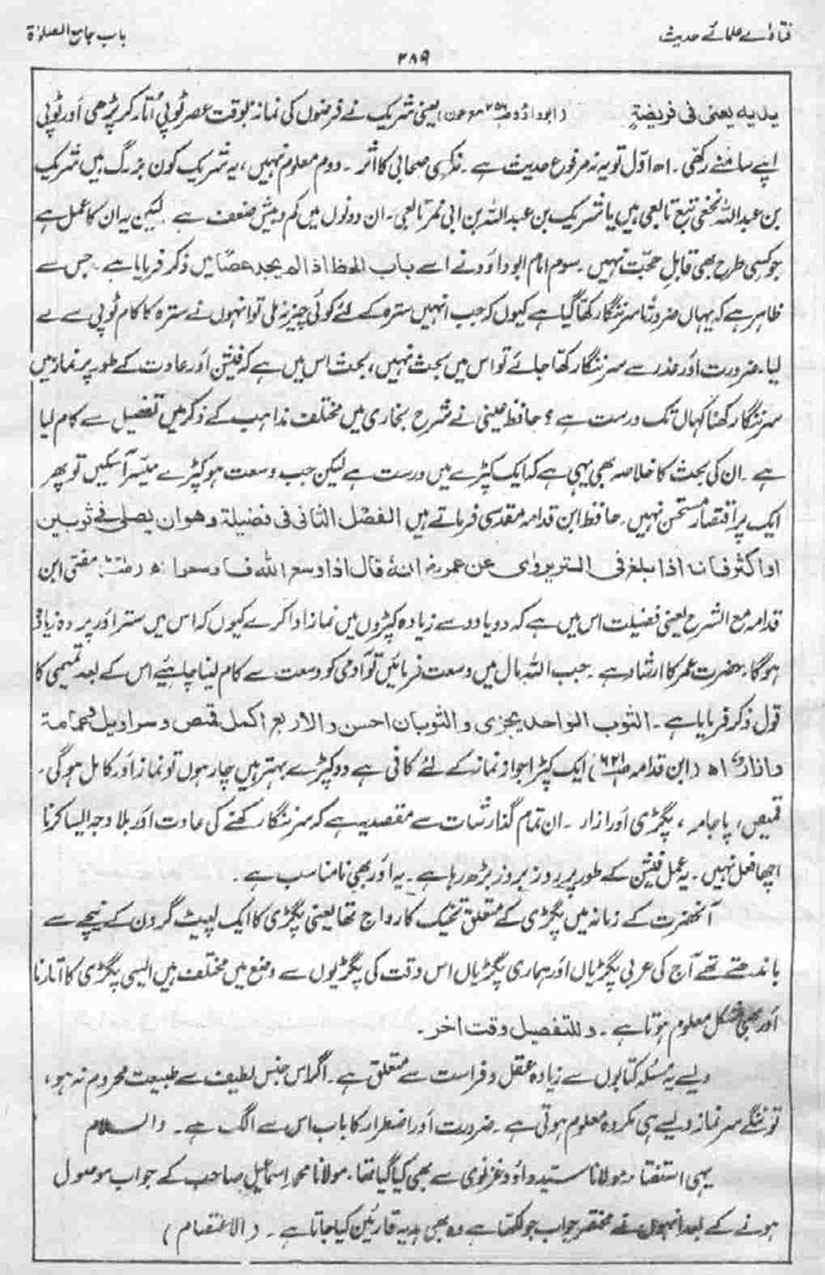 فتاوٰے علمائے حدیث
باب جامع الصلوٰۃ
۲۸۹
یدیہ یعنی فی فریضۃٍ (ابوداؤد ص۲۵۶ مع عون) یعنی شریک نے فرضوں کی نماز بوقت عصر ٹوپی اُتار کر پڑھی اَور ٹوپی
اپنے سامنے رکھی۔ اھ اوّل تو یہ نہ مرفوع حدیث ہے۔ نہ کسی صحابی کا اثر۔ دوم معلوم نہیں، یہ شریک کون بزرگ ہیں شریک
بن عبداللہ نخعی تبع تابعی ہیں یا شریک بن عبداللہ بن ابی نمر تابعی۔ ان دونوں میں کم و بیش ضعف ہے لیکن یہ ان کا عمل ہے
جو کسی طرح بھی قابلِ حجّت نہیں۔ سوم امام ابو داؤد نے اسے باب الخط اذا لم یجد عصًا میں ذکر فرمایا ہے۔ جس سے
ظاہر ہے کہ یہاں ضرورتاً سر ننگا رکھا گیا ہے کیوں کہ جب انہیں سترہ کے لئے کوئی چیز نہ ملی تو انہوں نے سترہ کا کام ٹوپی سے لے
لیا۔ ضرورت اَور عذر سے سر ننگا رکھا جائے تو اس میں بحث نہیں، بحث اس میں ہے کہ فیشن اَور عادت کے طور پر نماز میں
سر ننگا رکھنا کہاں تک درست ہے؟ حافظ عینی نے شرح بخاری میں مختلف مذاہب کے ذکر میں تفصیل سے کام لیا
ہے۔ ان کی بحث کا خلاصہ بھی یہی ہے کہ ایک کپڑے میں درست ہے لیکن جب وسعت ہو کپڑے میسّر آسکیں تو پھر
ایک پر اقتصار مستحسن نہیں۔ حافظ ابن قدامہ مقدسی فرماتے ہیں الفصل الثانی فی فضیلۃ وھوان یصلی فی ثوبین
او اکثر فانہ اذا بلغ فی الستر یروٰی عن عمر انہٗ قال اذا وسع اللہ فاوسعوا ھ مفتی ابن
قدامہ مع الشرح یعنی فضیلت اس میں ہے کہ دو یا دو سے زیادہ کپڑوں میں نماز ادا کرے کیوں کہ اس میں ستر اَور پردہ زیادہ
ہوگا۔ حضرت عمر کا ارشاد ہے۔ جب اللہ مال میں وسعت فرمائیں تو آدمی کو وسعت سے کام لینا چاہیئے اس کے بعد تمیمی کا
قول ذکر فرمایا ہے۔ الثوب الواحد یجزی والثوبان احسن والاربع اکمل قمیص وسراویل عمامۃ
وازار اھ (ابن قدامہ ص۶۲۱) ایک کپڑا جواز نماز کے لئے کافی ہے دو کپڑے بہتر ہیں چار ہوں تو نماز اَور کامل ہوگی۔
قمیص، پاجامہ، پگڑی اَور ازار۔ ان تمام گذارشات سے مقصد یہ ہے کہ سر ننگا رکھنے کی عادت اَور بلا وجہ ایسا کرنا
اچھا فعل نہیں۔ یہ عمل فیشن کے طور پر روز بروز بڑھ رہا ہے۔ یہ اَور بھی نامناسب ہے۔
آنحضرت کے زمانہ میں پگڑی کے متعلق تحنیک کا رواج تھا یعنی پگڑی کا ایک لپیٹ گردن کے نیچے سے
باندھتے تھے آج کی عربی پگڑیاں اَور ہماری پگڑیاں اس وقت کی پگڑیوں سے وضع میں مختلف ہیں ایسی پگڑی کا اتارنا
اَور بھی مشکل معلوم ہوتا ہے۔ وللتفصیل وقت اخر۔
ویسے یہ مسئلہ کتابوں سے زیادہ عقل و فراست سے متعلق ہے۔ اگر اس جنس لطیف سے طبیعت محروم نہ ہو،
تو ننگے سر نماز ویسے ہی مکروہ معلوم ہوتی ہے۔ ضرورت اَور اضطرار کا باب اس سے الگ ہے۔ والسلام
یہی استفتاء مولانا سید داؤد غزنوی سے بھی کیا گیا تھا۔ مولانا محمد اسماعیل صاحب کے جواب موصول
ہونے کے بعد انہوں نے مختصر جواب جو لکھا ہے وہ بھی ہدیہ قارئین کیا جاتا ہے۔ (الاعتصام)